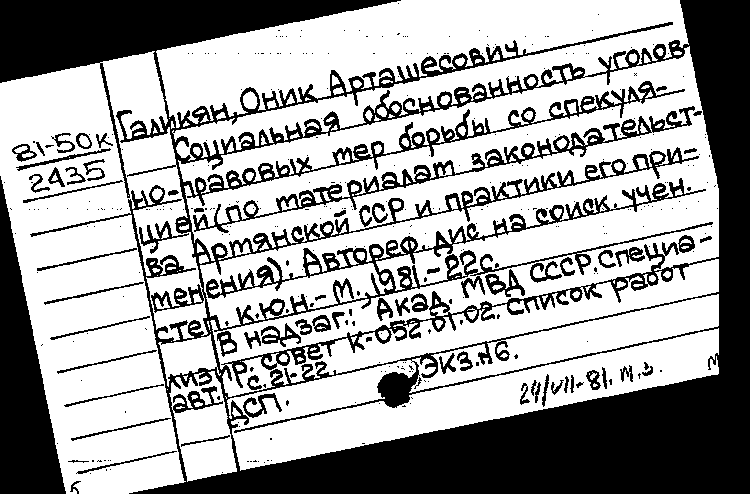 81-50к
2435
Галикян, Оник Арташесович.
Социальная обоснованность уголов-
но-правовых мер борьбы со спекуля-
цией (по материалам законодательст-
ва Армянской ССР и практики его при-
менения): Автореф. дис. на соиск. учен.
степ. к.ю.н.- М., 1981.- 22с.
В надзаг.: Акад. МВД СССР. Специа-
лизир. совет К-052.01.02. Список работ
авт.: с. 21-22.
ЭКЗ.№6.
ДСП.
24/VII-81. м.з.